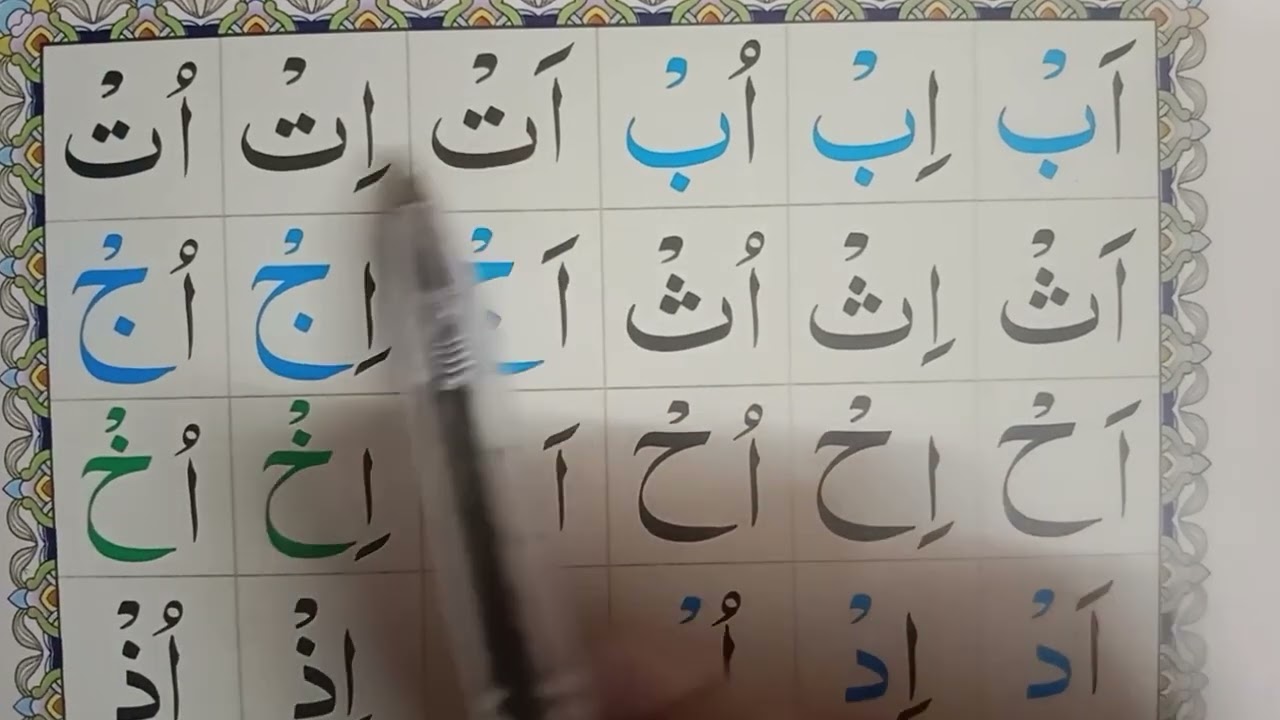 اَبْ اِبْ اُبْ اَتْ اِتْ اُتْ
اَثْ اِثْ اُثْ اَجْ اِجْ اُجْ
اَحْ اِحْ اُحْ اَ اِخْ اُخْ
اَدْ اِدْ اُ اِذْ اُذْ